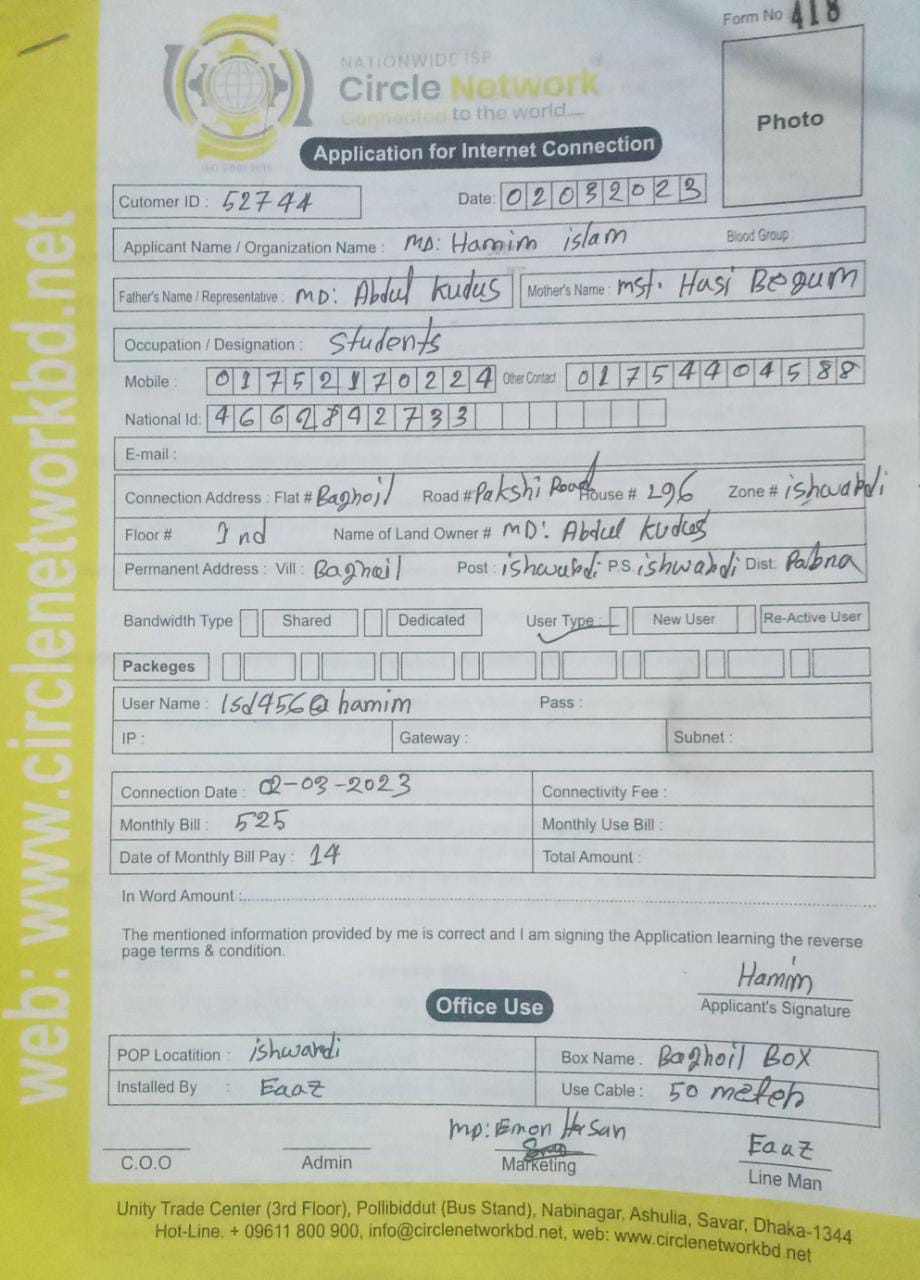 Form No 418
NATIONWIDE ISP
Circle Network
Connected to the world
ISO 9001:2015
Photo
Application for Internet Connection
Cutomer ID : 52744 Date: 02032023
Applicant Name / Organization Name : MD: Hamim islam Blood Group :
Father's Name / Representative : MD: Abdul kudus Mother's Name : mst. Hasi Begum
Occupation / Designation : Students
Mobile : 01752170224 Other Contact 01754404588
National Id: 4662842733
E-mail :
Connection Address : Flat # Baghoil Road # Pakshi Road House # 296 Zone # ishwardi
Floor # 2nd Name of Land Owner # MD: Abdul kudus
Permanent Address : Vill : Baghail Post : ishwardi P.S. ishwardi Dist: Pabna
Bandwidth Type Shared Dedicated User Type : New User Re-Active User
Packeges
User Name : Isd456@hamim Pass :
IP : Gateway : Subnet :
Connection Date : 02-03-2023 Connectivity Fee :
Monthly Bill : 525 Monthly Use Bill :
Date of Monthly Bill Pay : 14 Total Amount :
In Word Amount :
The mentioned information provided by me is correct and I am signing the Application learning the reverse
page terms & condition.
Hamim
Applicant's Signature
Office Use
POP Locatition : ishwardi Box Name : Baghoil Box
Installed By : Eaaz Use Cable : 50 meter
MD: Emon Hasan Eaaz
C.O.O Admin Marketing Line Man
Unity Trade Center (3rd Floor), Pollibiddut (Bus Stand), Nabinagar, Ashulia, Savar, Dhaka-1344
Hot-Line: + 09611 800 900, info@circlenetworkbd.net, web: www.circlenetworkbd.net
web: www.circlenetworkbd.net